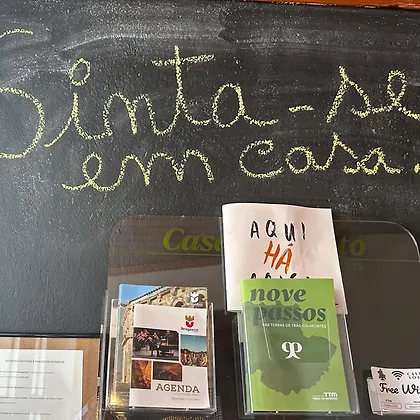 Sinta-se
em casa.
Casa
to
AQUI
HÁ
nove
passos
NAS TERRAS DE TRÁS-OS-MONTES
Bragança
AGENDA
Free Wi